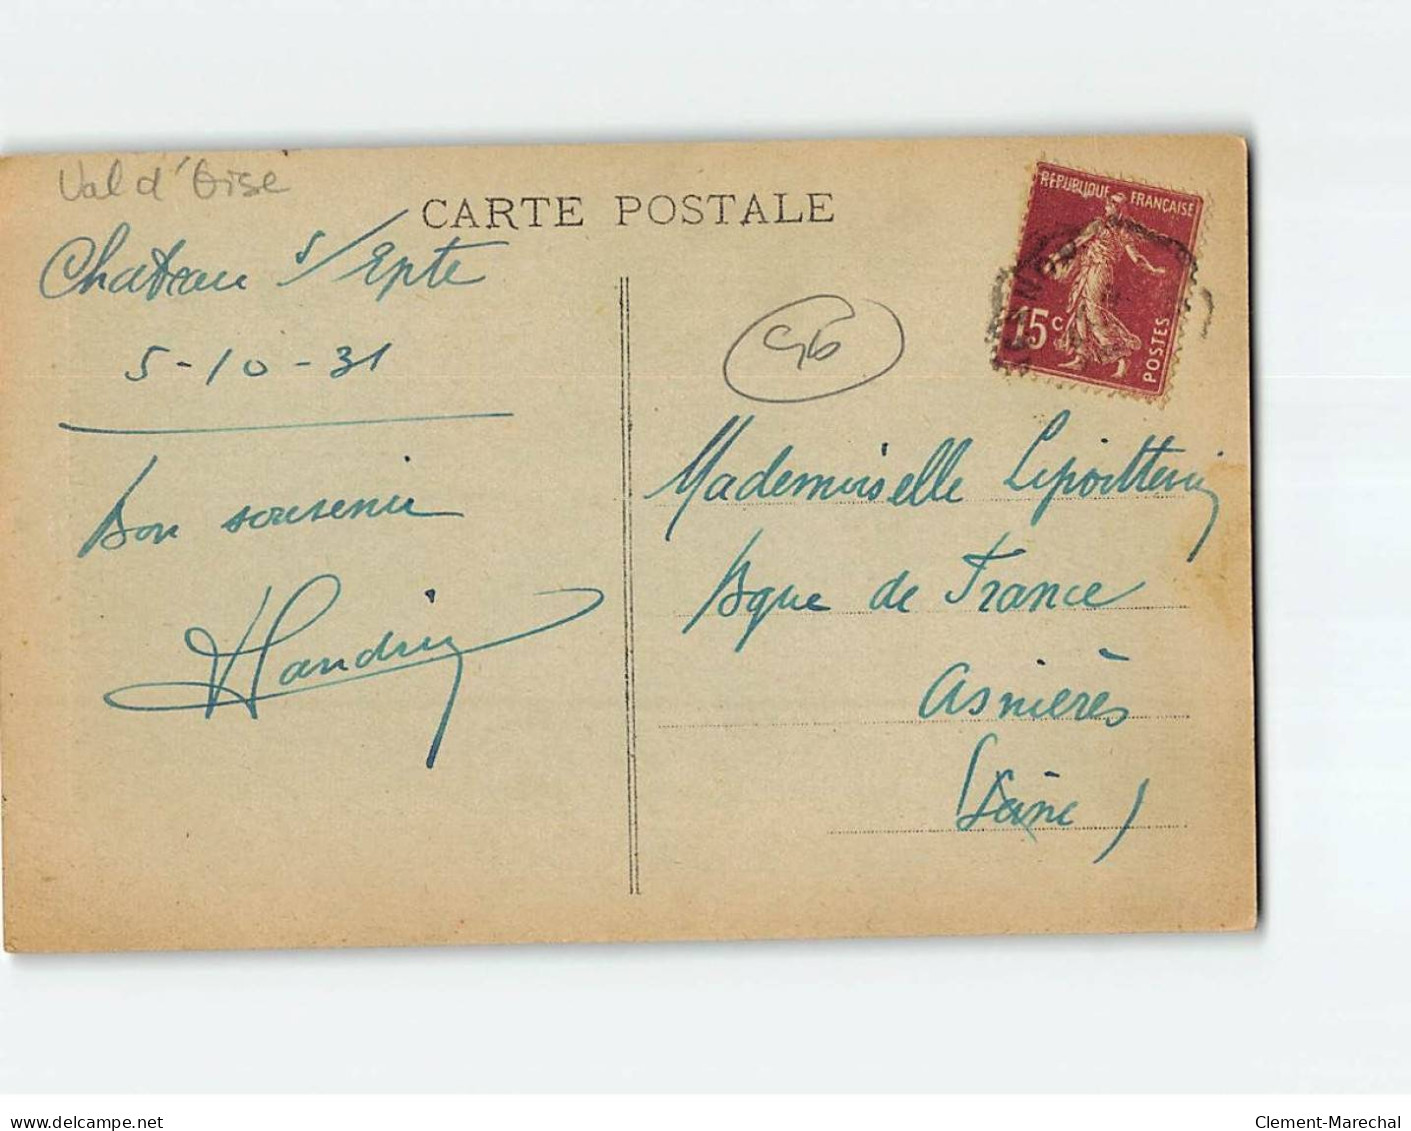 Val d'Oise
CARTE POSTALE
Chateau s/Epte
5-10-31
Bon souvenir
REPUBLIQUE FRANÇAISE
15c
POSTES
Mademoiselle Lepoittevin
Bque de France
Asnières
(Seine)
www.delcampe.net
Clement-Marechal